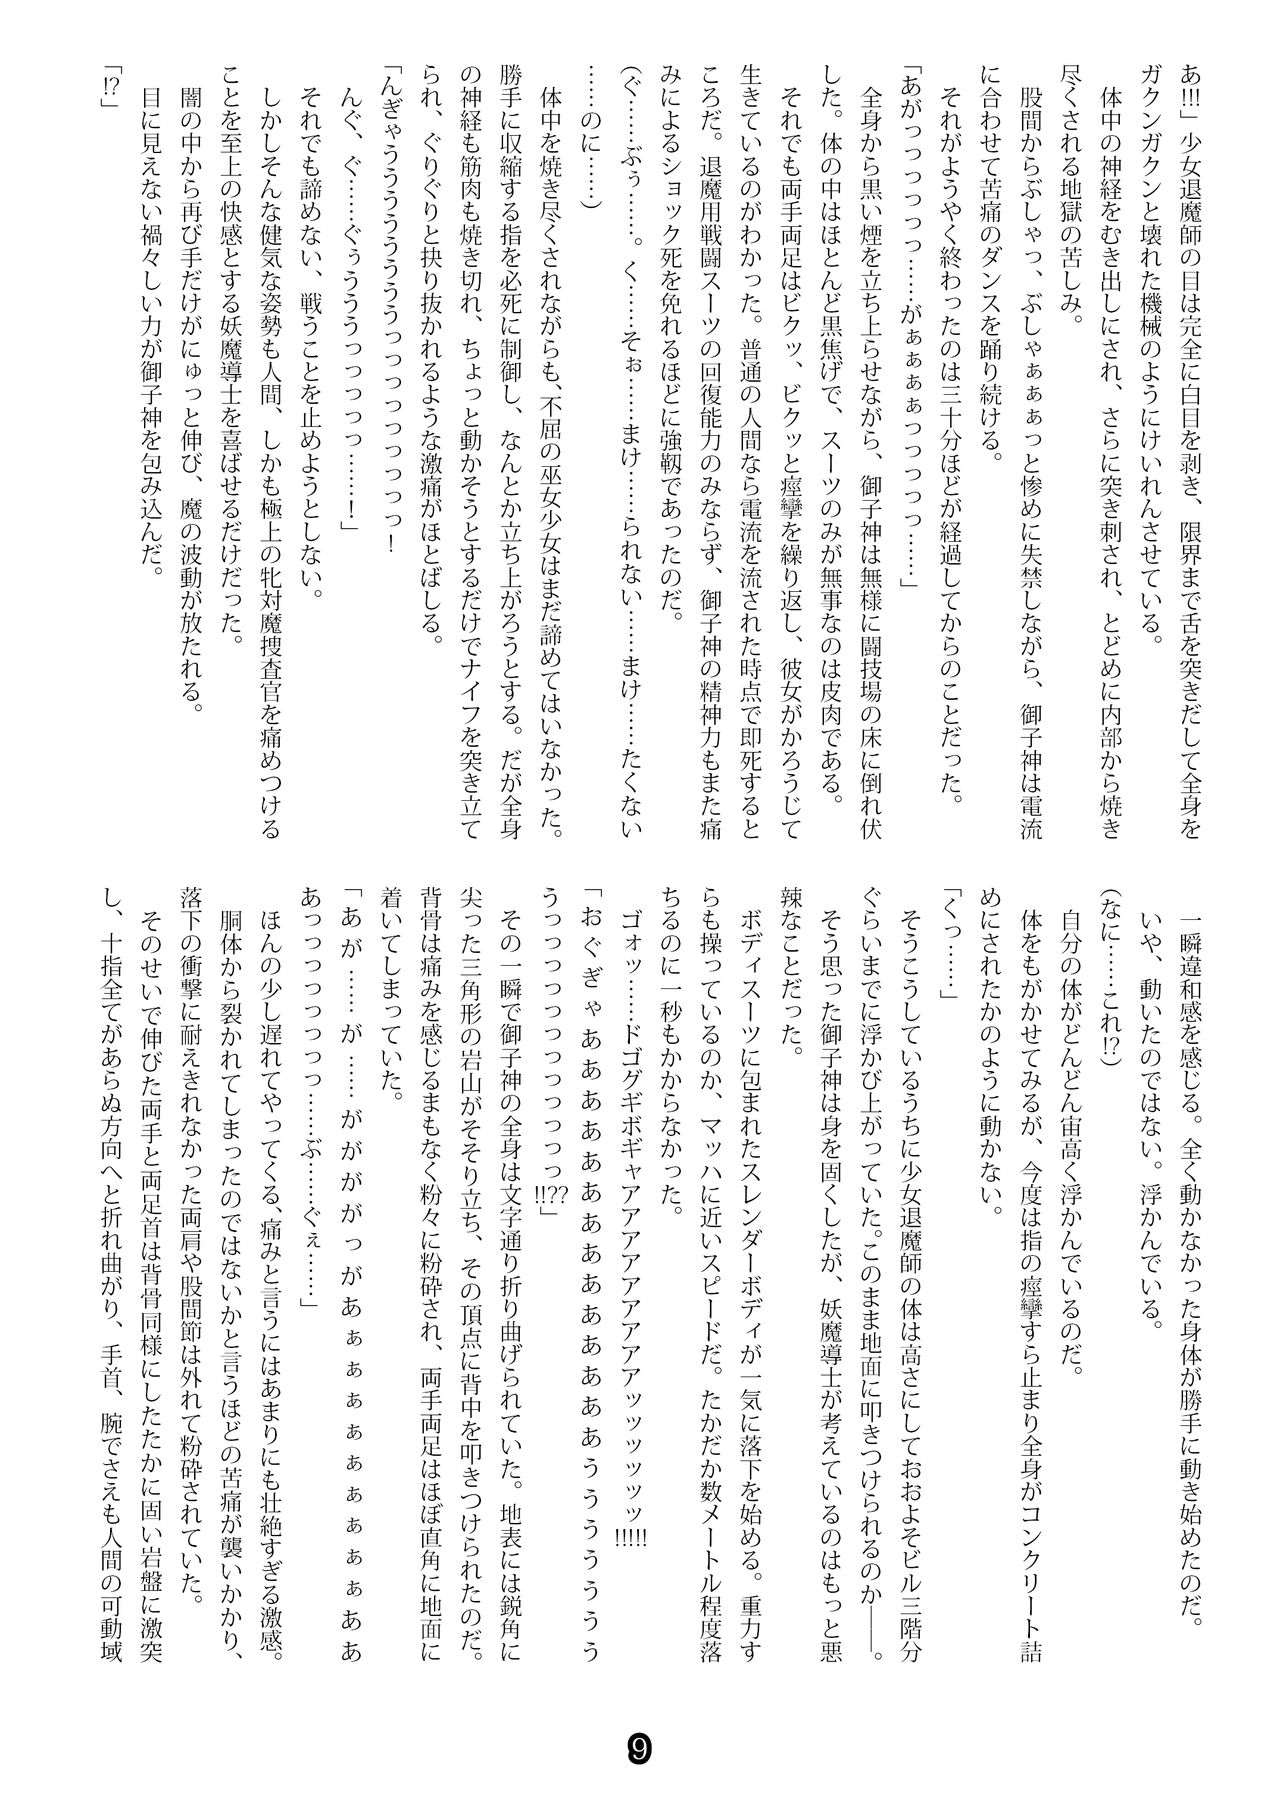 あ!!!」少女退魔師の目は完全に白目を剥き、限界まで舌を突きだして全身を
ガクンガクンと壊れた機械のようにけいれんさせている。
体中の神経をむき出しにされ、さらに突き刺され、とどめに内部から焼き
尽くされる地獄の苦しみ。
股間からぶしゃっ、ぶしゃぁぁぁっと惨めに失禁しながら、御子神は電流
に合わせて苦痛のダンスを踊り続ける。
それがようやく終わったのは三十分ほどが経過してからのことだった。
「あがっっっっっっ……がぁぁぁぁっっっっっ……」
全身から黒い煙を立ち上らせながら、御子神は無様に闘技場の床に倒れ伏
した。体の中はほとんど黒焦げで、スーツのみが無事なのは皮肉である。
それでも両手両足はビクッ、ビクッと痙攣を繰り返し、彼女がかろうじて
生きているのがわかった。普通の人間なら電流を流された時点で即死すると
ころだ。退魔用戦闘スーツの回復能力のみならず、御子神の精神力もまた痛
みによるショック死を免れるほどに強靭であったのだ。
(ぐ……ぶぅ……。く……そぉ……まけ……られない……まけ……たくない
……のに……)
体中を焼き尽くされながらも、不屈の巫女少女はまだ諦めてはいなかった。
勝手に収縮する指を必死に制御し、なんとか立ち上がろうとする。だが全身
の神経も筋肉も焼き切れ、ちょっと動かそうとするだけでナイフを突き立て
られ、ぐりぐりと抉り抜かれるような激痛がほとばしる。
「んぎゃうううううううっっっっっっっっ!
んぐ、ぐ……ぐぅうううっっっっっ……!」
それでも諦めない、戦うことを止めようとしない。
しかしそんな健気な姿勢も人間、しかも極上の牝対魔捜査官を痛めつける
ことを至上の快感とする妖魔導士を喜ばせるだけだった。
闇の中から再び手だけがにゅっと伸び、魔の波動が放たれる。
目に見えない禍々しい力が御子神を包み込んだ。
「!?」
一瞬違和感を感じる。全く動かなかった身体が勝手に動き始めたのだ。
いや、動いたのではない。浮かんでいる。
(なに……これ!?)
自分の体がどんどん宙高く浮かんでいるのだ。
体をもがかせてみるが、今度は指の痙攣すら止まり全身がコンクリート詰
めにされたかのように動かない。
「くっ……」
そうこうしているうちに少女退魔師の体は高さにしておおよそビル三階分
ぐらいまでに浮かび上がっていた。このまま地面に叩きつけられるのか――。
そう思った御子神は身を固くしたが、妖魔導士が考えているのはもっと悪
辣なことだった。
ボディスーツに包まれたスレンダーボディが一気に落下を始める。重力す
らも操っているのか、マッハに近いスピードだ。たかだか数メートル程度落
ちるのに一秒もかからなかった。
ゴォッ……ドゴグギボギャアアアアアアアアッッッッッ!!!!!
「おぐぎゃああああああああああああああうううううう
うっっっっっっっっっっっ!!??」
その一瞬で御子神の全身は文字通り折り曲げられていた。地表には鋭角に
尖った三角形の岩山がそそり立ち、その頂点に背中を叩きつけられたのだ。
背骨は痛みを感じるまもなく粉々に粉砕され、両手両足はほぼ直角に地面に
着いてしまっていた。
「あが……が……ががががっがあぁぁぁぁぁぁぁぁぁああ
あっっっっっっっ……ぶ……ぐぇ……」
ほんの少し遅れてやってくる、痛みと言うにはあまりにも壮絶すぎる激感。
胴体から裂かれてしまったのではないかと言うほどの苦痛が襲いかかり、
落下の衝撃に耐えきれなかった両肩や股間節は外れて粉砕されていた。
そのせいで伸びた両手と両足首は背骨同様にしたたかに固い岩盤に激突
し、十指全てがあらぬ方向へと折れ曲がり、手首、腕でさえも人間の可動域
9